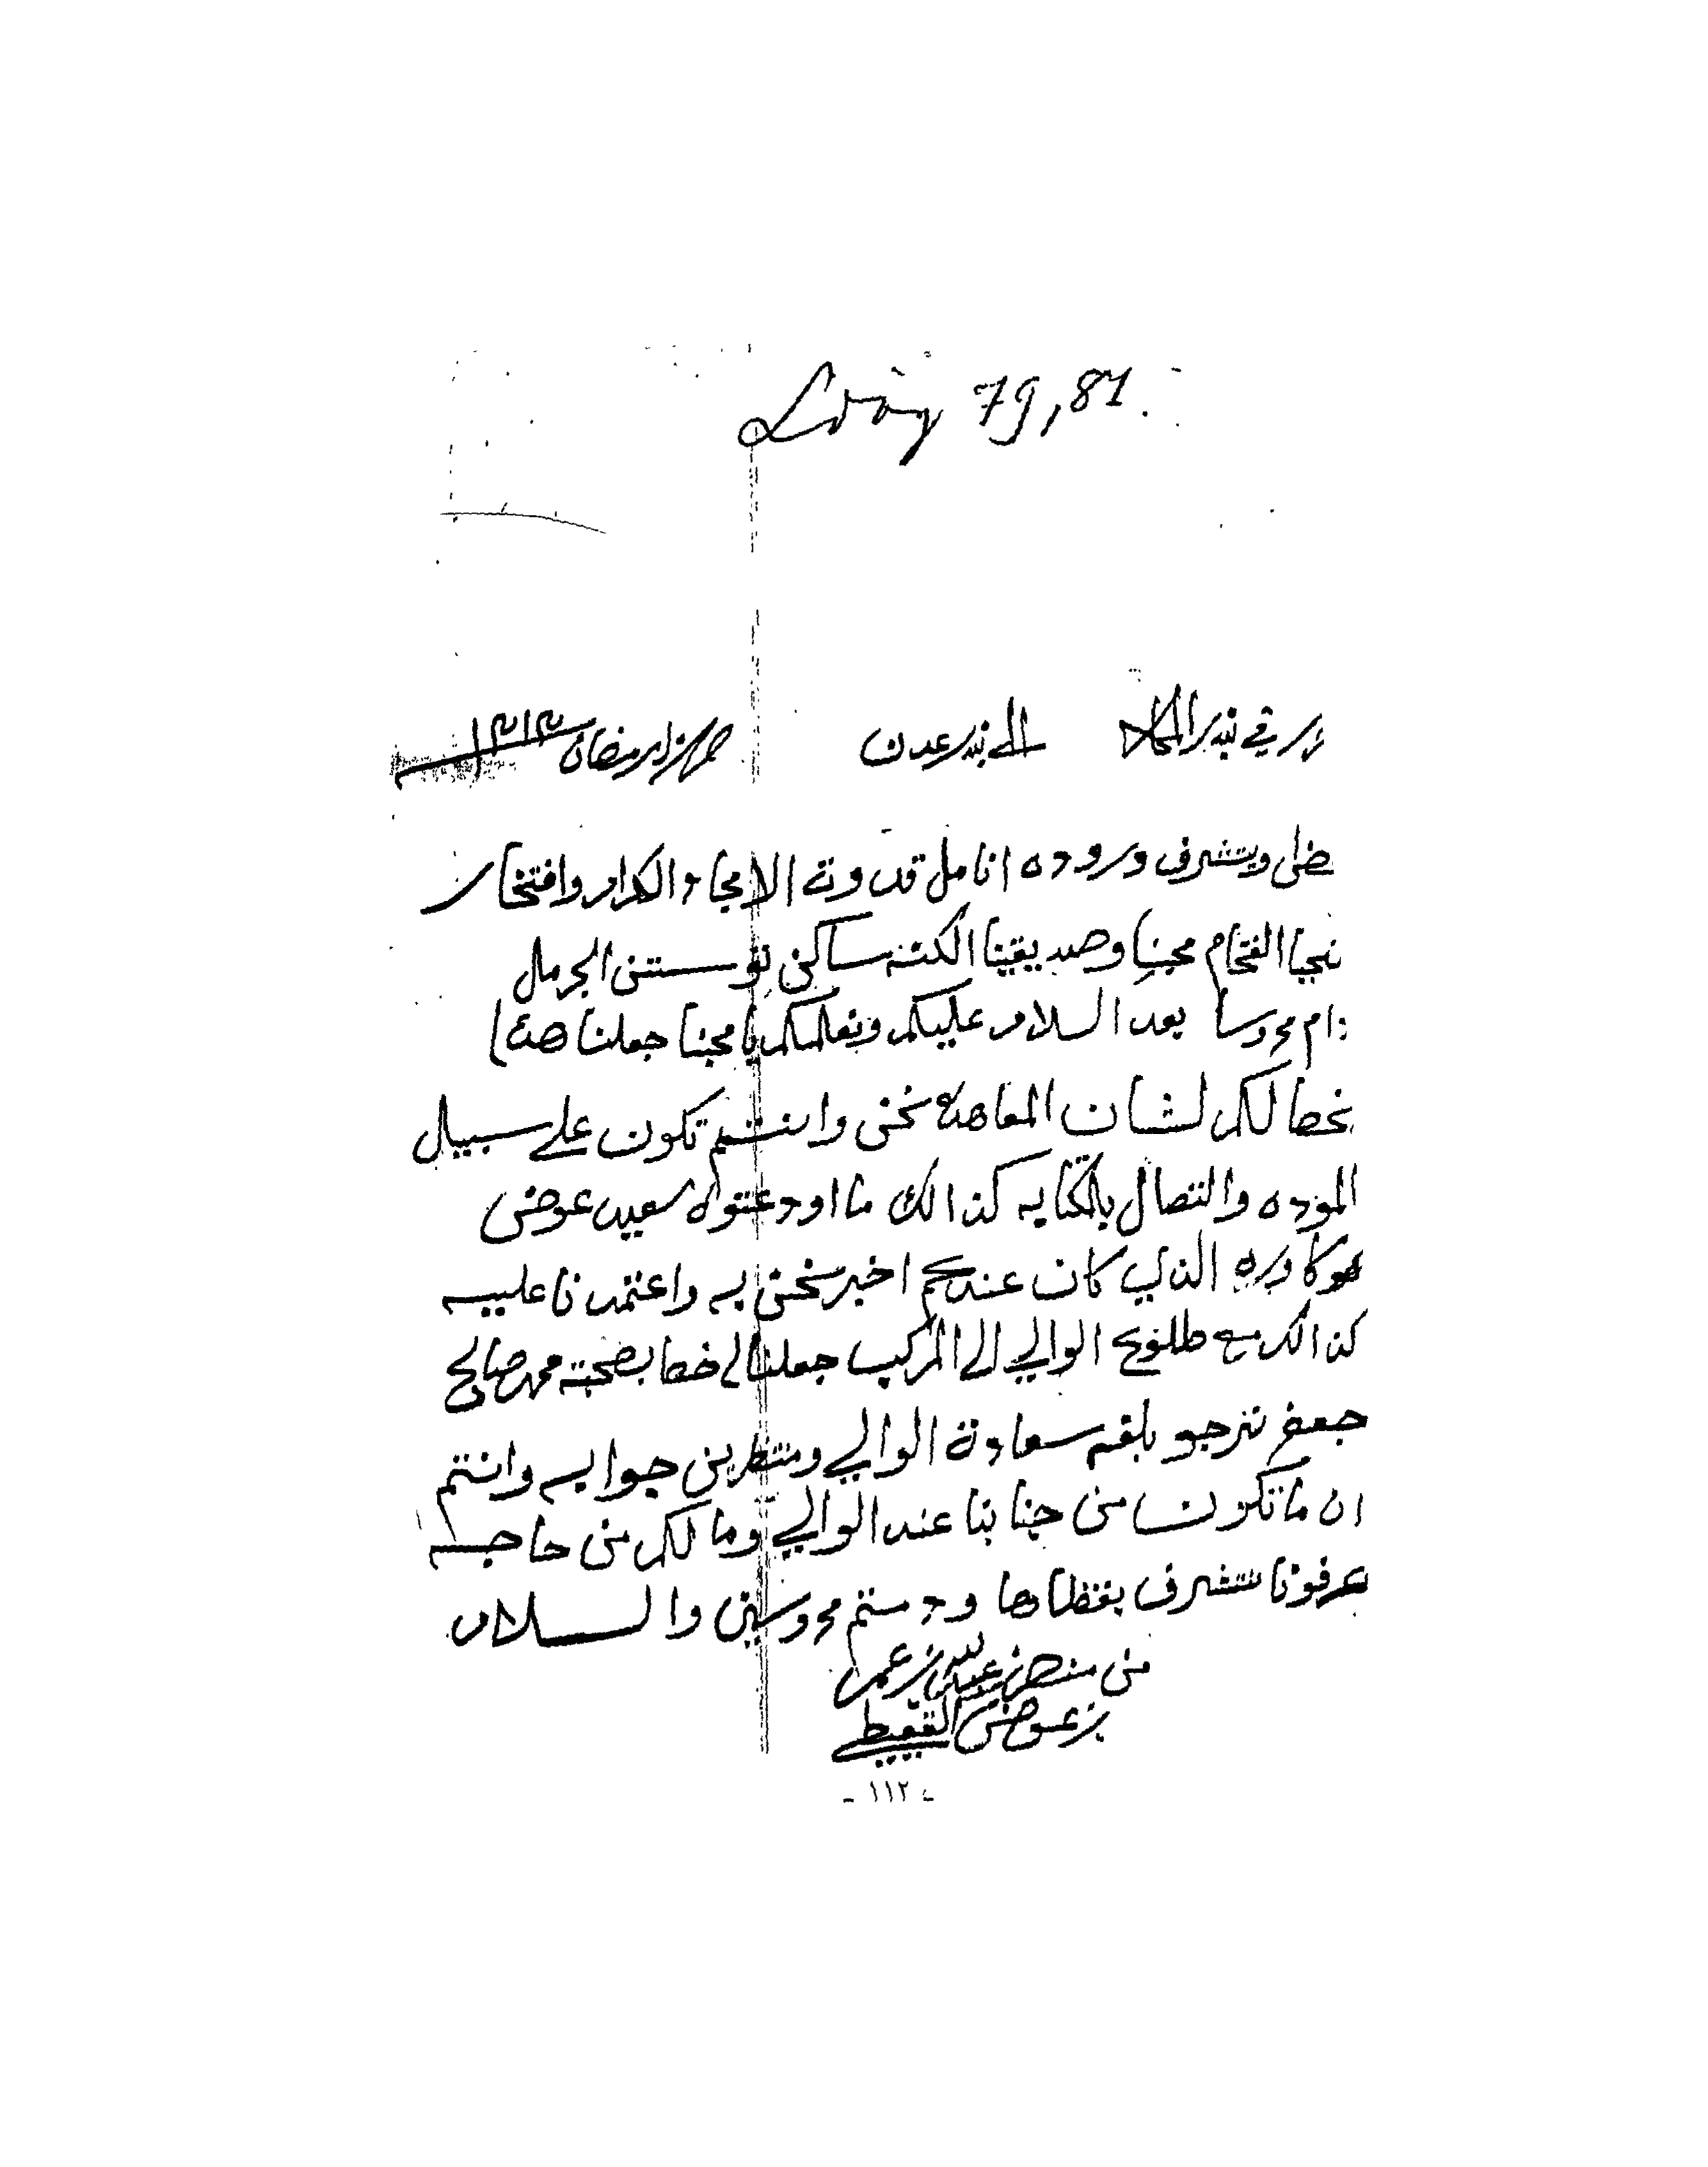 79,81.
في بندر المكلا الى بندر عدن رمضان ١٣١٣
ويتشرف وروده انامل قدوة الامجاد الكرام وافتخار
الفخام محبنا وصديقينا الكنه ساكن الجرمل
دام محروسا بعد السلام عليكم ونعلمكم يا محبنا جعلنا هذا
الخط لكم لشان المعاهده نحن وانتم تكون على سبيل
الموده والتصال بالكتابه كذالك ما اودعتوه سعيد عوض
الذي كان عندكم اخبر نحن به واعتمدنا عليه
كذالك مع طلوع الوالي الى المركب جعلنا لي خط بصحبته محمد صالح
جعفر نترجو بلغه سعادة الوالي ومنتظرين جوابه وانتم
ان ما تكون من جنابنا عند الوالي وما لكم من حاجه
عرفونا نتشرف بقظاها ودمتم محروسين والسلام
من منصر بن عبدالله بن عمر
بن عوض القعيطي
- ١١٢ -